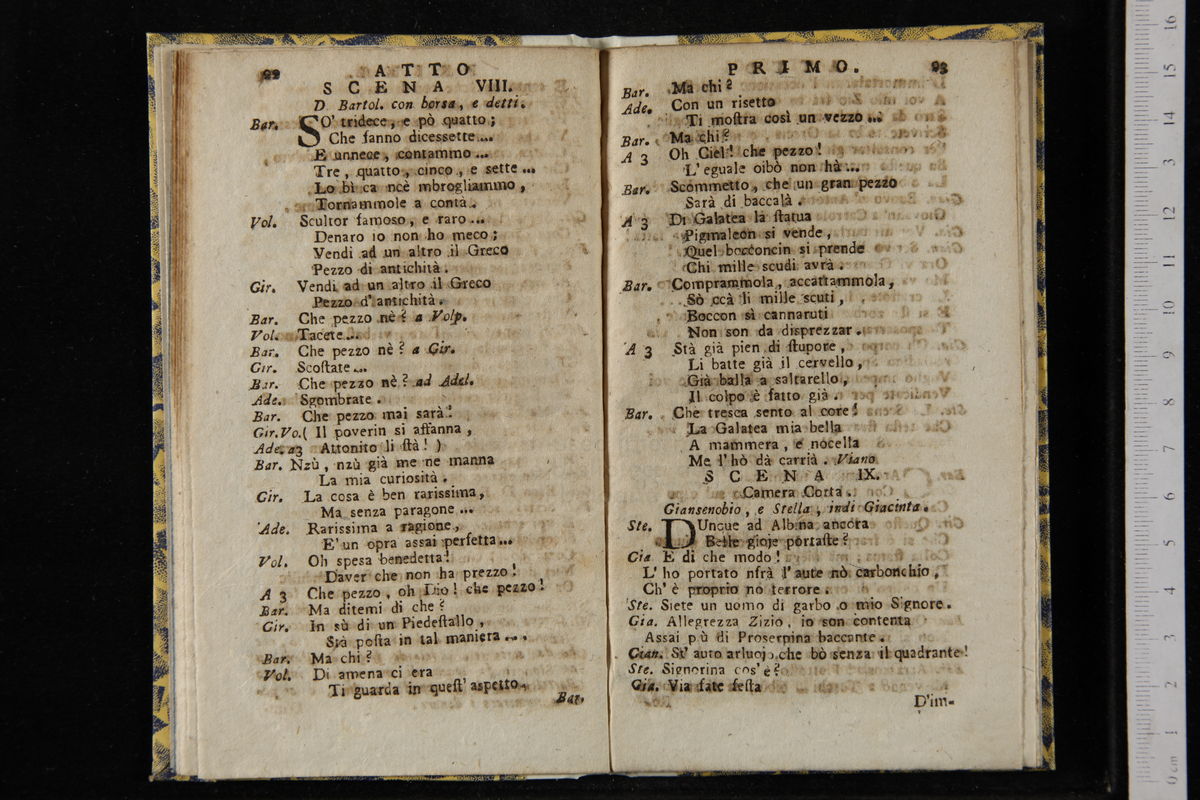 22
ATTO
SCENA VIII.
D. Bartol. con borsa, e detti.
Bar. SO' tridece, e pò quatto;
Che fanno dicessette...
E unnece, contammo...
Tre, quatto, cinco, e sette...
Lo bì ca ncè mbrogliammo,
Tornammole a contà.
Vol. Scultor famoso, e raro...
Denaro io non ho meco;
Vendi ad un altro il Greco
Pezzo di antichità.
Gir. Vendi ad un altro il Greco
Pezzo d'antichità.
Bar. Che pezzo nè? a Volp.
Vol. Tacete...
Bar. Che pezzo nè? a Gir.
Gir. Scoſtate...
Bar. Che pezzo nè? ad Adel.
Ade. Sgombrate.
Bar. Che pezzo mai sarà!
Gir.Vo.( Il poverin si affanna,
Ade. a3 Attonito li ſtà! )
Bar. Nzù, nzù già me ne manna
La mia curiosità.
Gir. La cosa è ben rarissima,
Ma senza paragone...
Ade. Rarissima a ragione,
E' un opra assai perfetta...
Vol. Oh spesa benedetta!
Daver che non ha prezzo!
A 3 Che pezzo, oh Dio! che pezzo!
Bar. Ma ditemi di che?
Gir. In sù di un Piedeſtallo,
Stà poſta in tal maniera...
Bar. Ma chi?
Vol. Di amena ci era
Ti guarda in queſt' aspetto.
Bar.
PRIMO. 23
Bar. Ma chi?
Ade. Con un risetto
Ti moſtra così un vezzo...
Bar. Ma chi?
A 3 Oh Ciel! che pezzo!
L'eguale oibò non hà...
Bar. Scommetto, che un gran pezzo
Sarà di baccalà.
A 3 Di Galatea la ſtatua
Pigmaleon si vende,
Quel bocconcin si prende
Chi mille scudi avrà.
Bar. Comprammola, accattammola,
Sò ccà li mille scuti,
Boccon sì cannaruti
Non son da disprezzar.
A 3 Stà già pien di ſtupore,
Li batte già il cervello,
Già balla a saltarello,
Il colpo è fatto già.
Bar. Che tresca sento al core!
La Galatea mia bella
A mammera, e nocella
Me l'hò dà carrià. Viano
SCENA IX.
Camera Corta.
Giansenobio, e Stella, indi Giacinta.
Ste. DUnque ad Albina ancora
Belle gioje portaſte?
Gia E di che modo!
L'ho portato nfrà l'aute nò carbonchio,
Ch'è proprio no terrore.
Ste. Siete un uomo di garbo o mio Signore.
Gia. Allegrezza Zizio, io son contenta
Assai più di Proserpina baccante.
Gian. St'auto arluojo che bò senza il quadrante!
Ste. Signorina cos'è?
Gia. Via fate feſta
D'im-